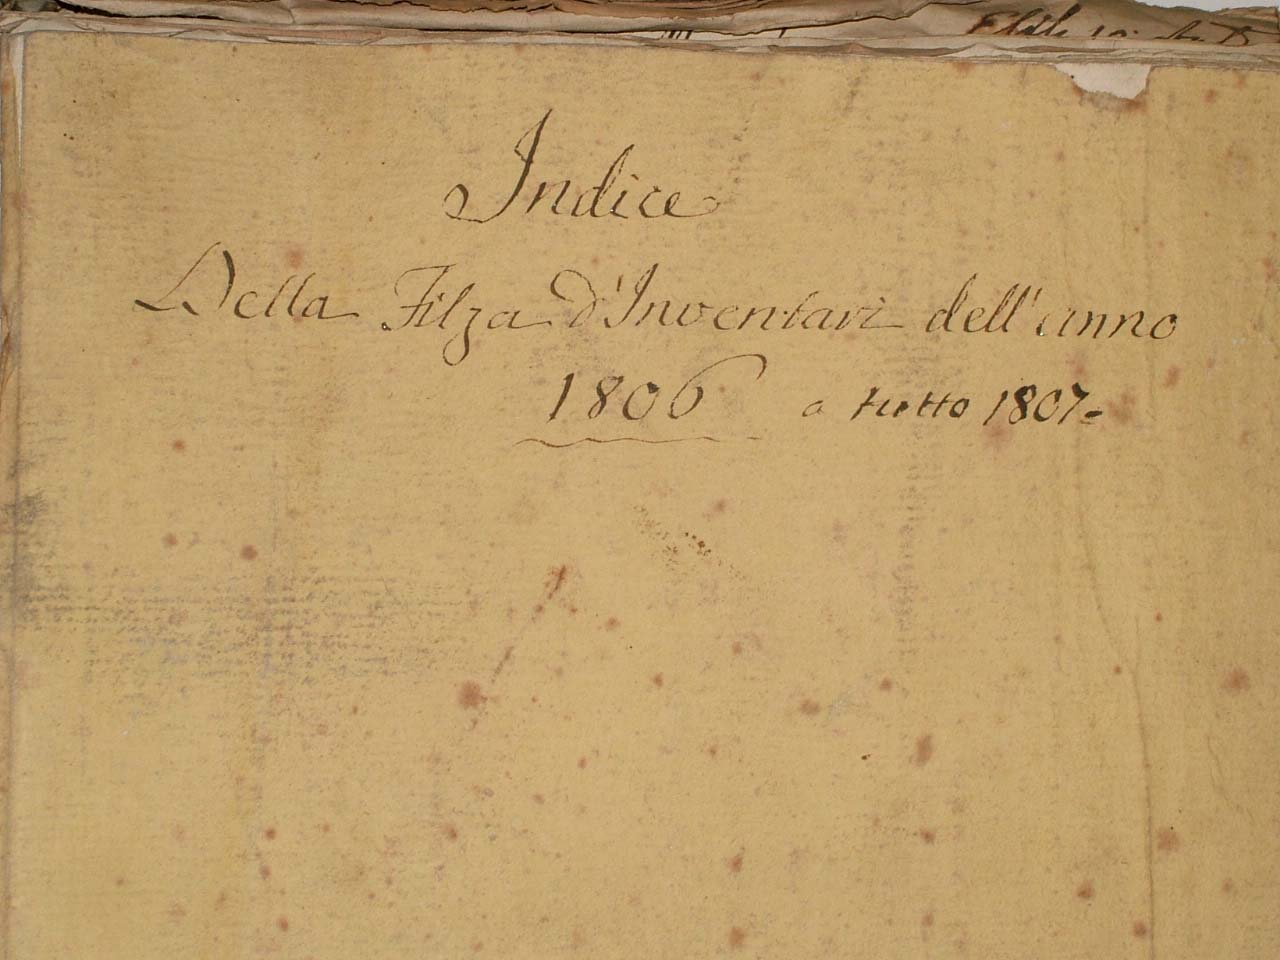 Indice
Della Filza d'Inventari dell'anno
1806 a tutto 1807=